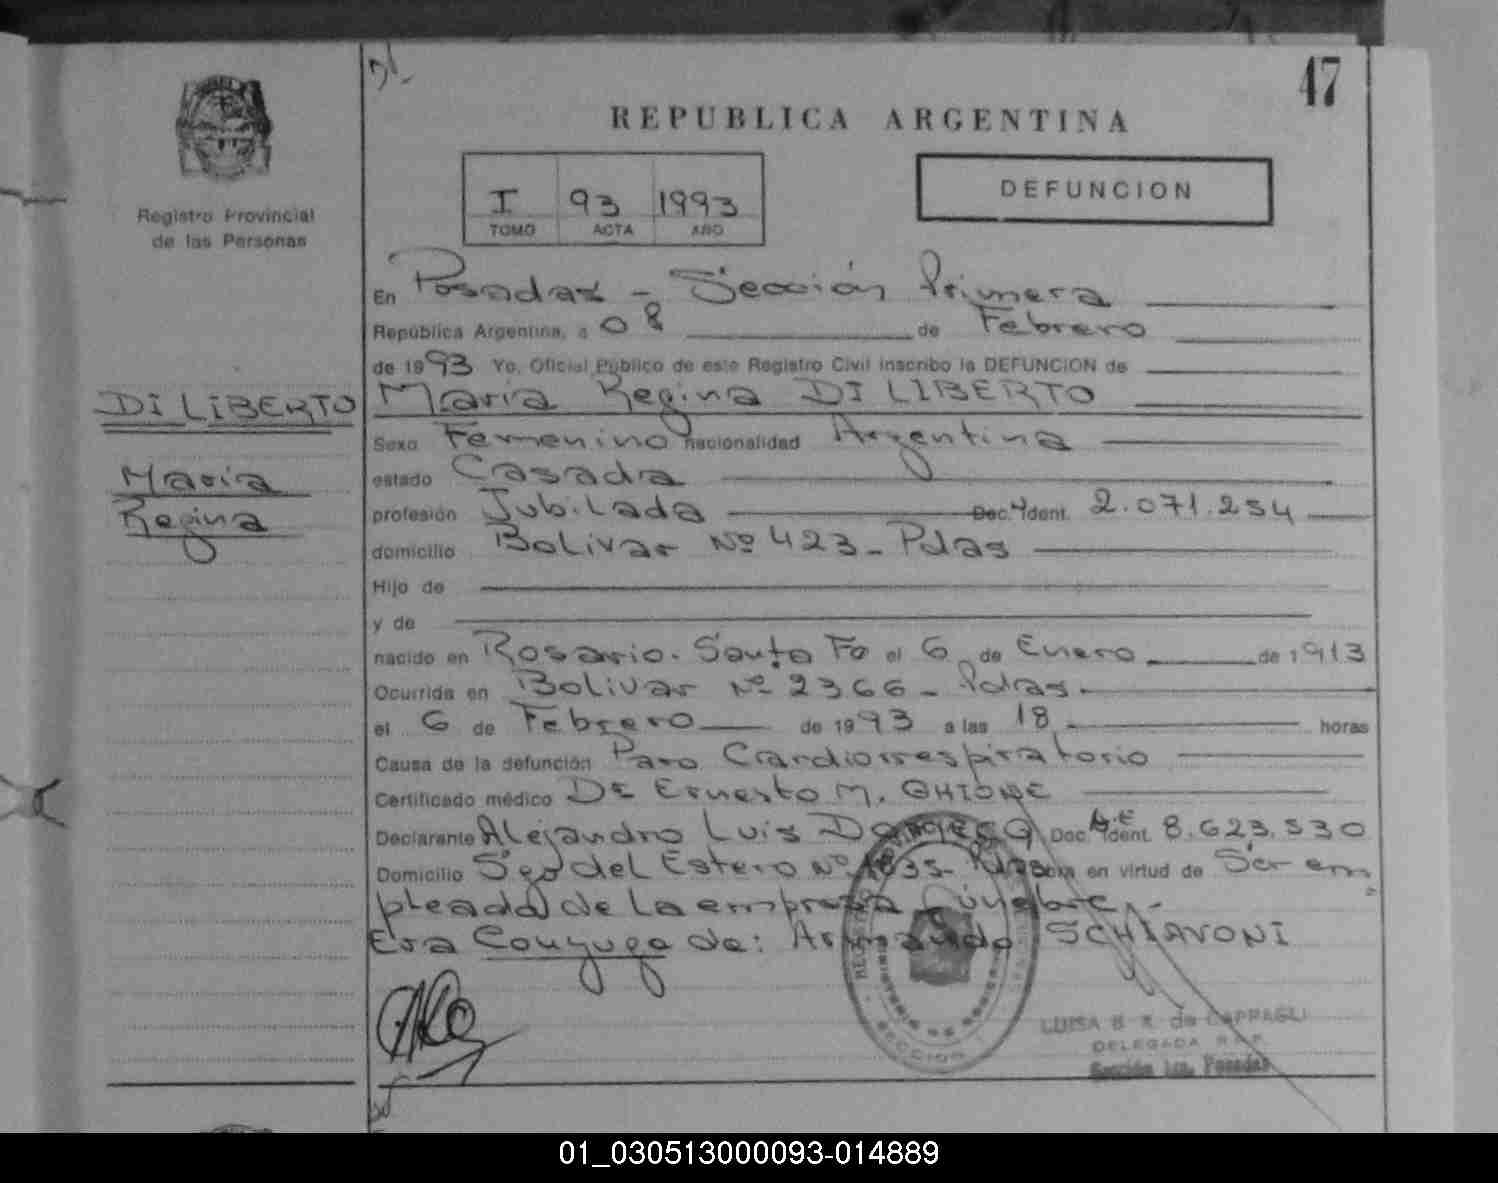 47
REPUBLICA ARGENTINA
Registro Provincial
de las Personas
I 93 1993
TOMO ACTA AÑO
DEFUNCION
En Posadas - Sección Primera
República Argentina, a 08 de Febrero
de 1993 Yo, Oficial Público de este Registro Civil inscribo la DEFUNCION de
DI LIBERTO
María Regina DI LIBERTO
María
Regina
Sexo Femenino nacionalidad Argentina
estado Casada
profesión Jubilada Doc. Ident. 2.071.254
domicilio Bolivar Nº 423 - Pdas
Hijo de
y de
nacido en Rosario. Santa Fe el 6 de Enero de 1913
Ocurrida en Bolivar Nº 2366 - Pdas.
el 6 de Febrero de 1993 a las 18 horas
Causa de la defunción Paro Cardiorrespiratorio
Certificado médico DE Ernesto M. GHIONE
Declarante Alejandro Luis Doc. Ident. 8.623.530
Domicilio Sgo del Estero Nº 1835 - Pdas en virtud de Ser em
pleado de la empresa fúnebre.-
Era Conyuge de: Armando SCHIAVONI
LUISA B. K. de CAPPAGLI
DELEGADA R.P.P.
Sección 1ra. Posadas
01_030513000093-014889